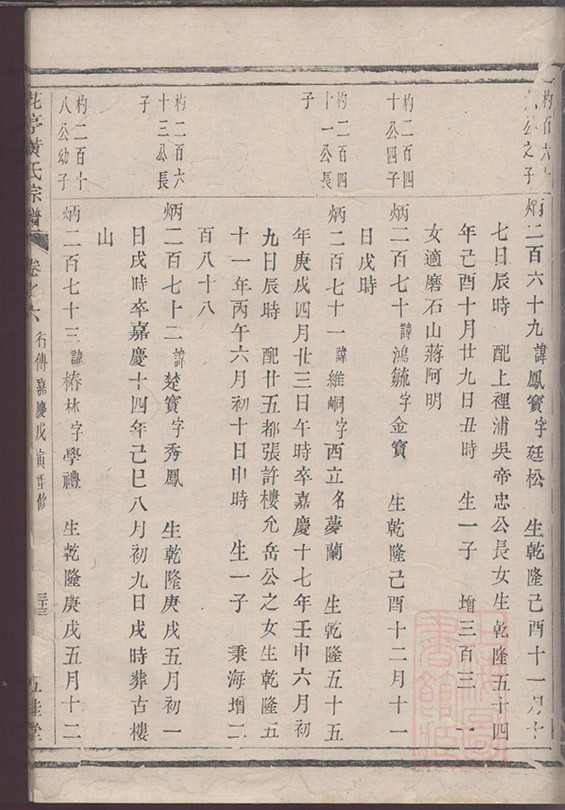 杓百六十
公之子
炳二百六十九諱鳳寶字廷松 生乾隆己酉十一月十
七日辰時 配上裡浦吳帝忠公長女生乾隆五十四
年己酉十月廿九日丑時 生一子 增三百三 一
女適磨石山蔣阿明
杓二百四
十公四子
炳二百七十諱鴻毓字金寶 生乾隆己酉十二月十一
日戌時
杓二百四
十一公長
子
炳二百七十一諱維峒字西立名夢蘭 生乾隆五十五
年庚戌四月廿三日午時卒嘉慶十七年壬申六月初
九日辰時 配廿五都張許樓允岳公之女生乾隆五
十一年丙午六月初十日申時 生一子 秉海增二
百八十八
杓二百六
十三公長
子
炳二百七十二諱楚寶字秀鳳 生乾隆庚戌五月初一
日戌時卒嘉慶十四年己巳八月初九日戌時葬古樓
山
杓二百十
八公幼子
炳二百七十三諱椿林字學禮 生乾隆庚戌五月十二
亭黃氏宗譜 卷之六 行傳嘉慶戊寅重修 三十三 五桂堂